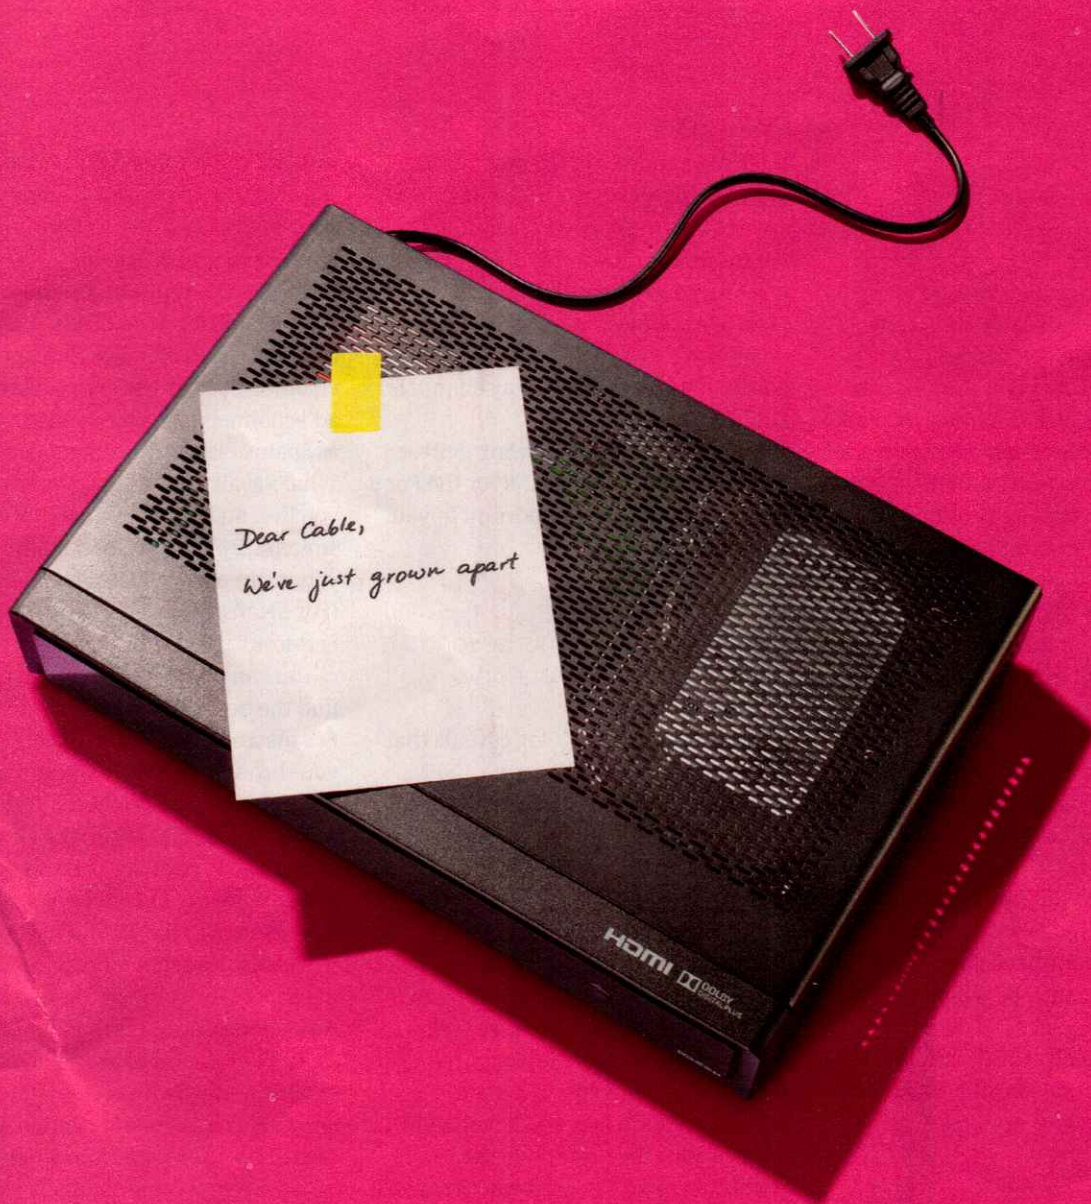 Dear Cable,
We've just grown apart
HDMI
DOLBY
DIGITAL PLUS